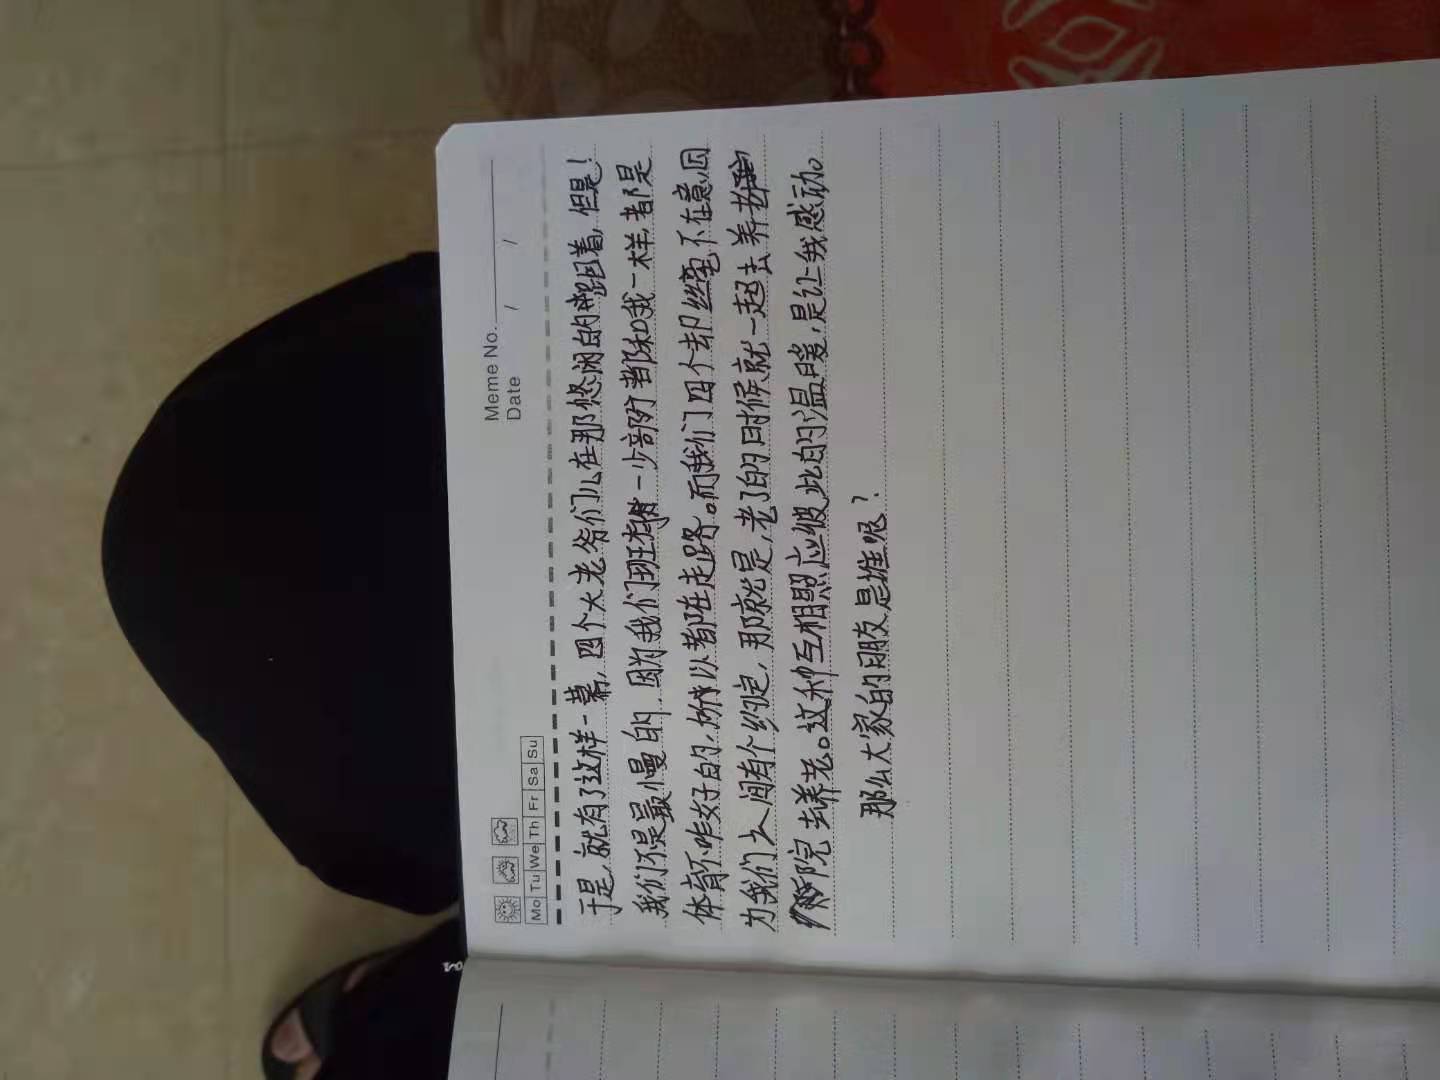 Meme No.
Date / /
Mo Tu We Th Fr Sa Su
于是,就有了这样一幕,四个大老爷们儿在那悠闲的踱着,但是!
我们不是最慢的,因为我们班有一少部分都和我一样,都是
体育不咋好的,所以都在走路。而我们四个却丝毫不在意,因
为我们之间有个约定,那就是,老了的时候就一起去养老
院去养老。这种互相照应彼此的温暖,是让我感动。
那么大家的朋友是谁呢?